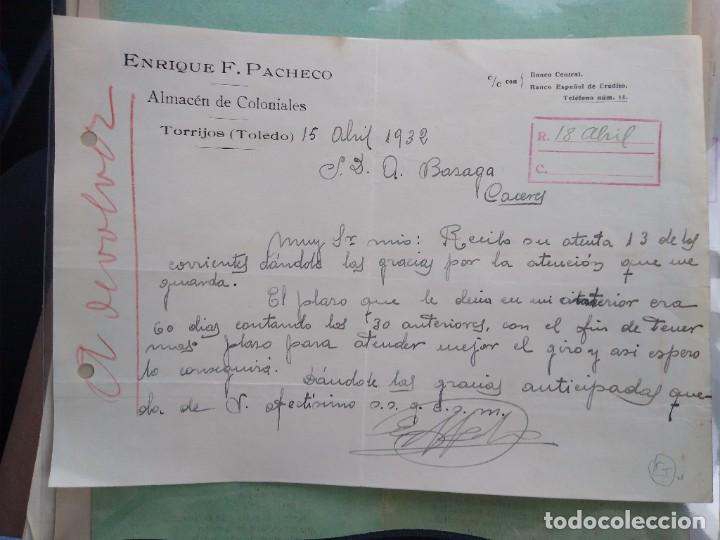 ENRIQUE F. PACHECO
Almacén de Coloniales
Torrijos (Toledo) 15 Abril 1932
c/c con { Banco Central.
Banco Español de Crédito.
Teléfono núm. 14.
R. 18 Abril
C.
S. D. A. Basaga
Caceres
A devolver
Muy Sr mio: Recibo su atenta 13 de los
corrientes dándole las gracias por la atención que me
guarda.
El plaso que le decia en mi anterior era
60 dias contando los 30 anteriores, con el fin de tener
mas plaso para atender mejor el giro y asi espero
lo conseguirá. Dándole las gracias anticipadas que-
da de V. afectisimo s.s.q.e.s.m.
todocoleccion
todocoleccion.net